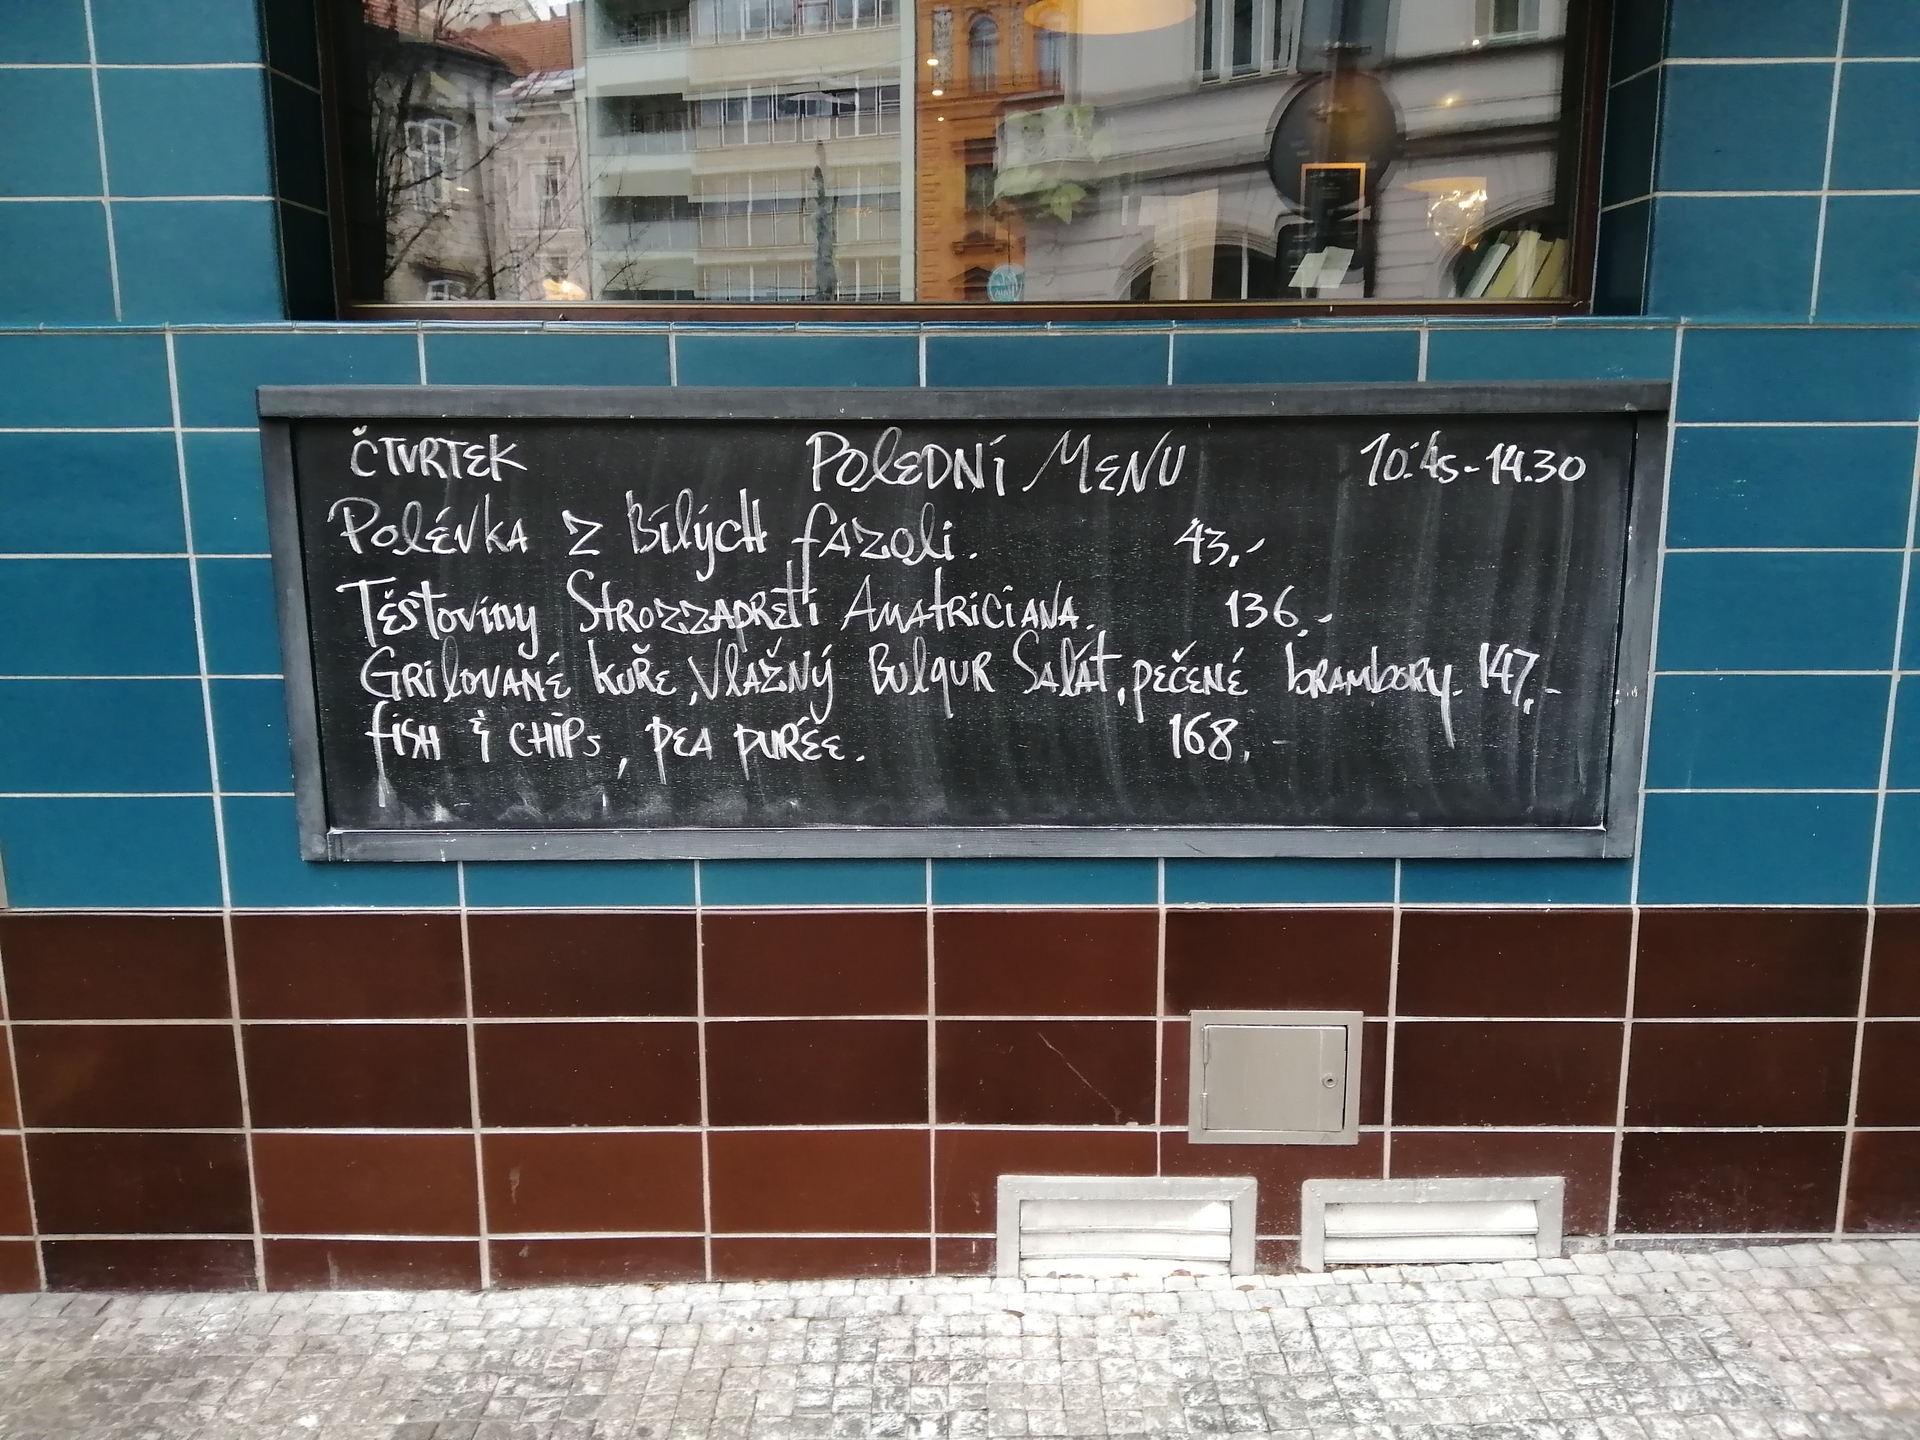 ČTVRTEK POLEDNÍ MENU 10:45-14.30
POLÉVKA Z BÍLÝCH FAZOLI. 43,-
TĚSTOVINY STROZZAPRETI AMATRICIANA. 136,-
GRILOVANÉ KUŘE, VLAŽNÝ BULGUR SALÁT, PEČENÉ BRAMBORY. 147,-
FISH & CHIPS, PEA PURÉE. 168,-